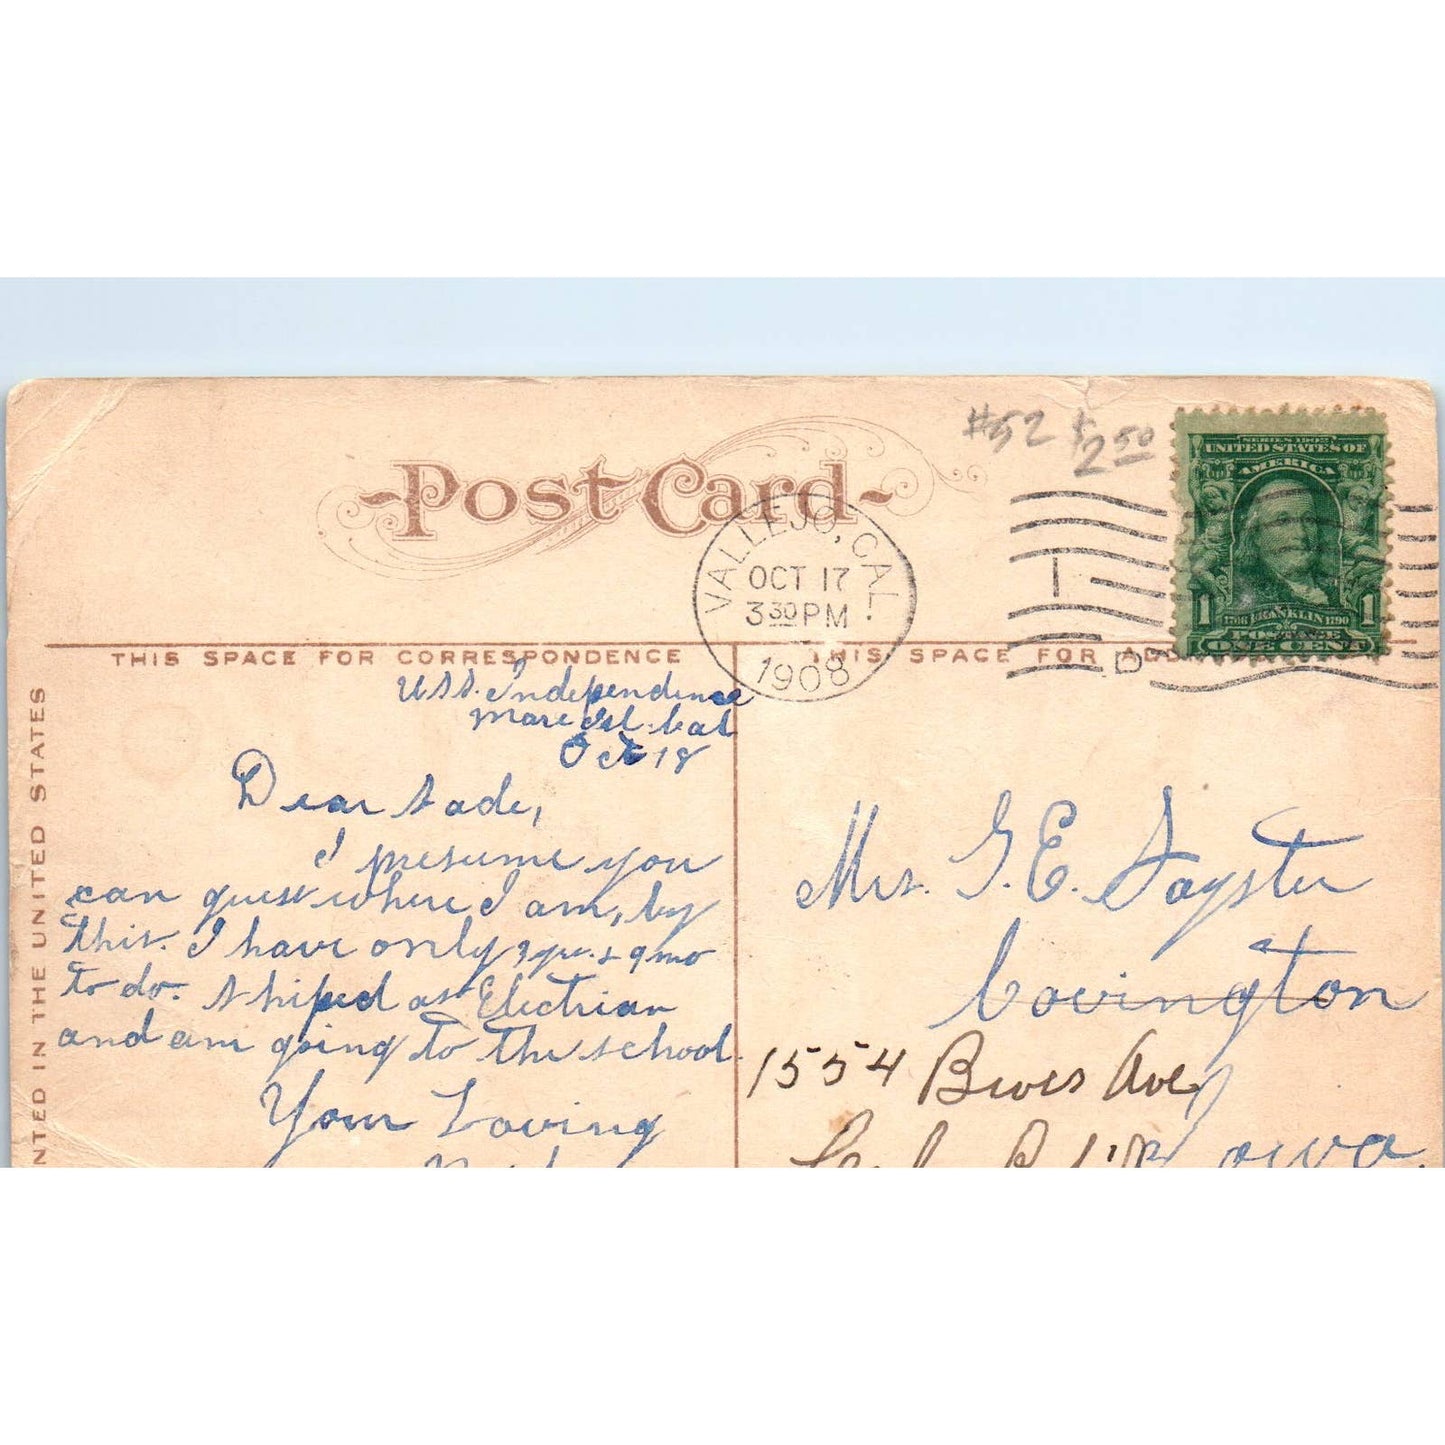 #52 $2.50
Post Card
SERIES 1902
UNITED STATES OF
AMERICA
1 1706 FRANKLIN 1790 1
POSTAGE
ONE CENT
VALLEJO, CAL.
OCT 17
3 30 PM
1908
1
D
THIS SPACE FOR CORRESPONDENCE
THIS SPACE FOR ADD
NTED IN THE UNITED STATES
U.S.S. Independence
Mare Isl. Cal
Oct 18
Dear Sade,
I presume you
can guess where I am, by
this. I have only 3 yrs. & 9 mo
to do. Shiped as Electrian
and am going to the school.
Your Loving
Mrs. G. E. Sayster
Covington
1554 Bever Ave
Iowa.